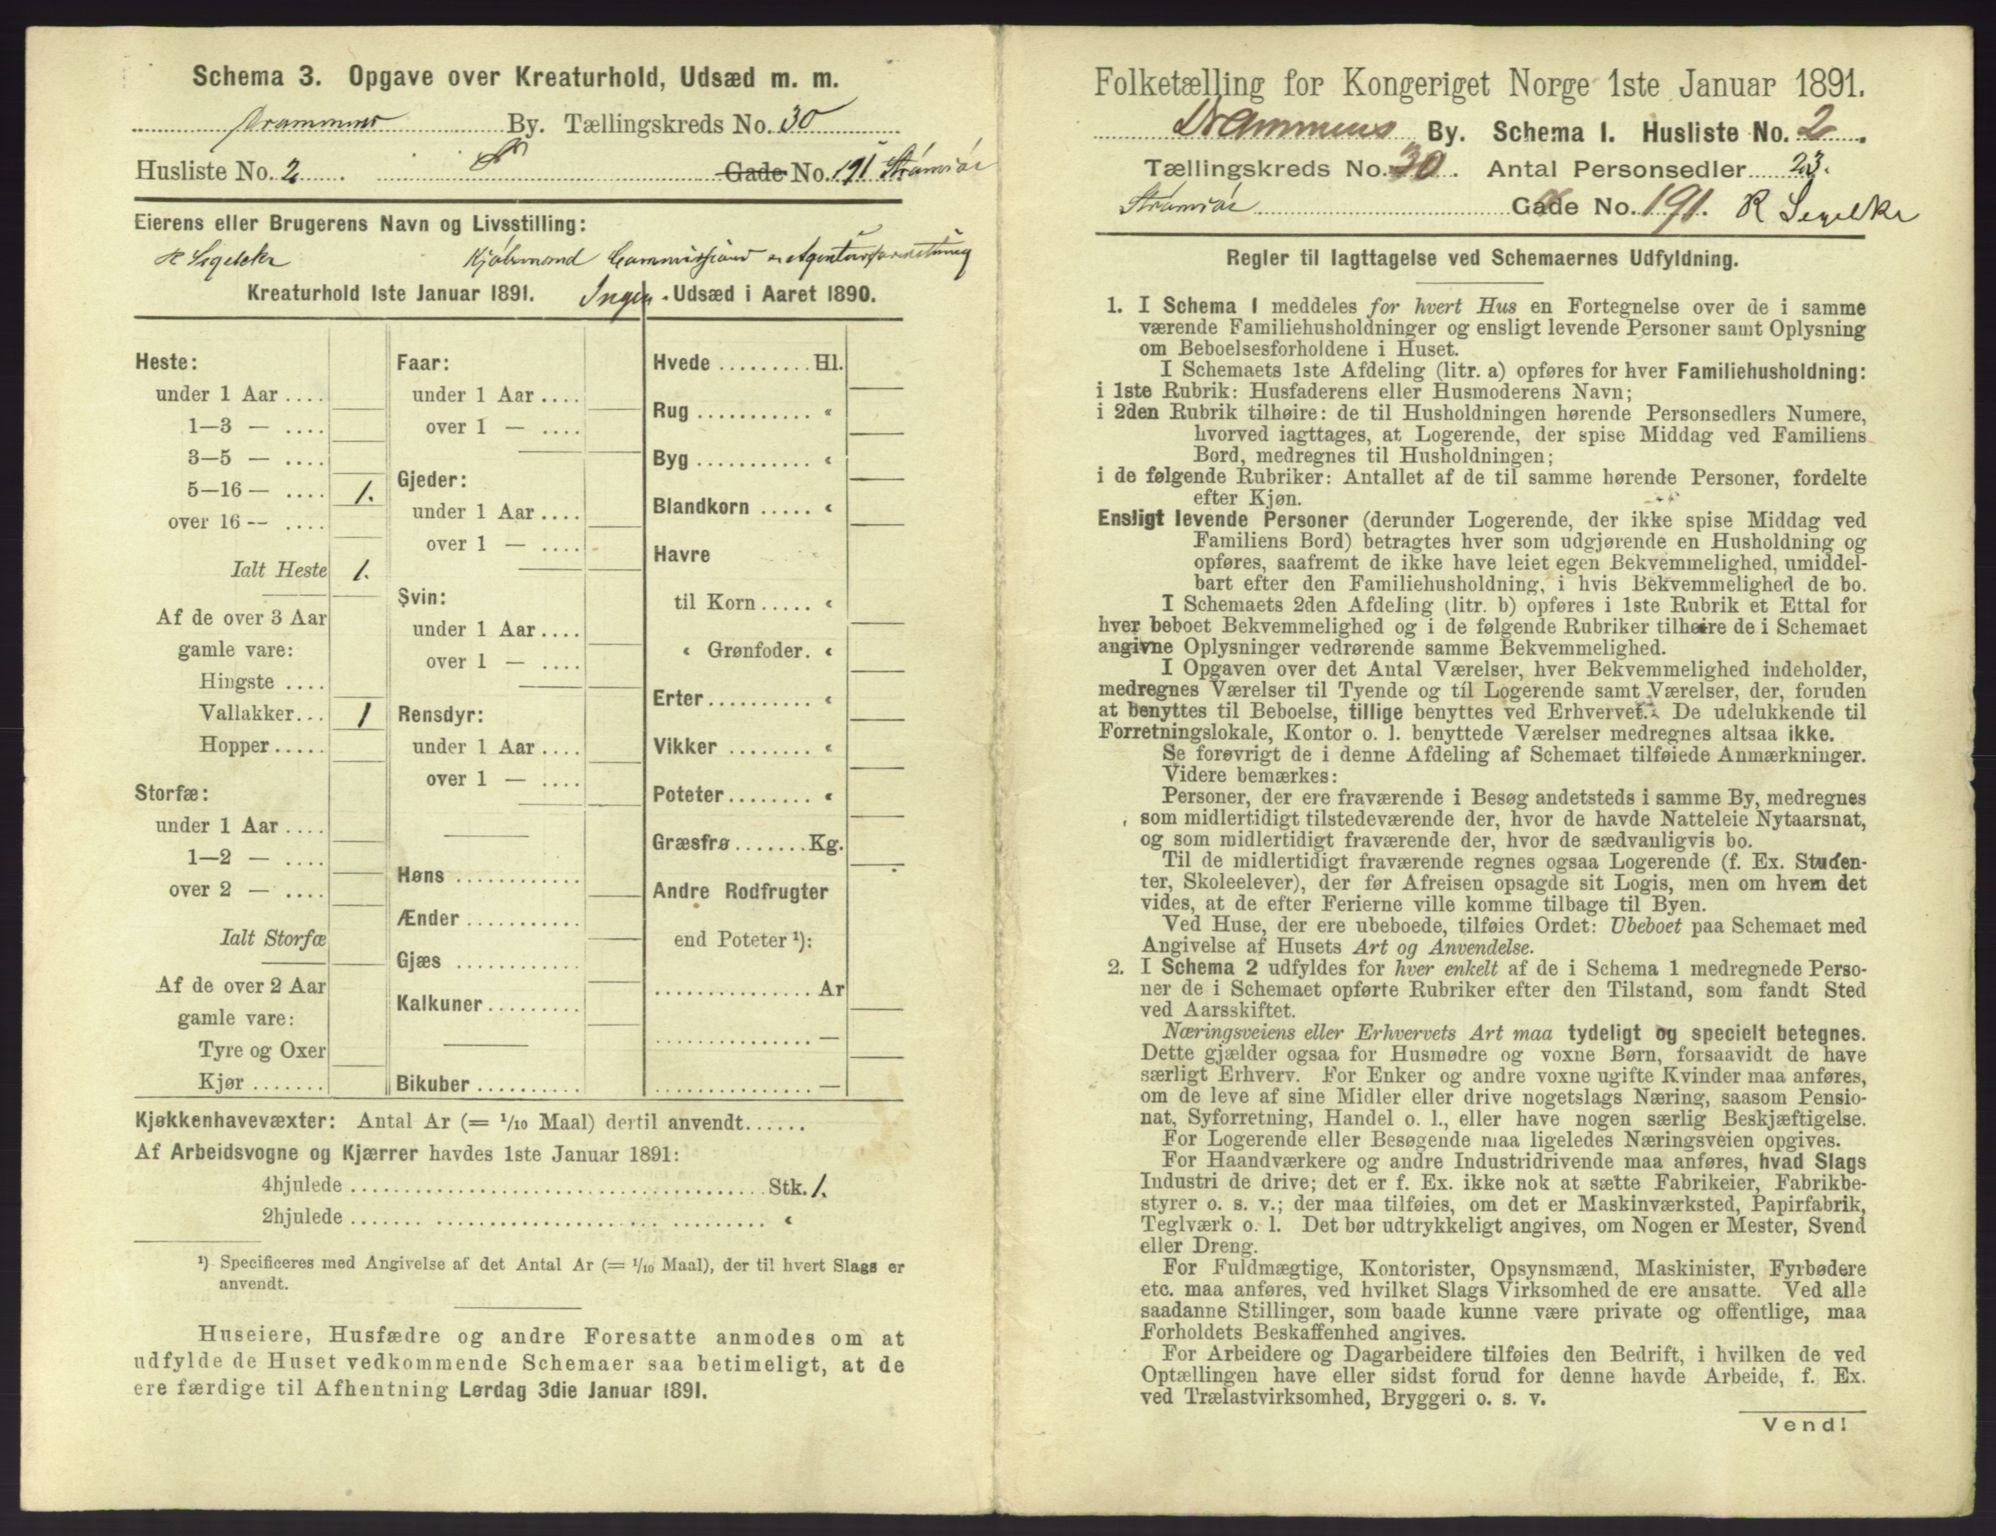 Schema 3. Opgave over Kreaturhold, Udsæd m. m.
Drammens By. Tællingskreds No. 30
Husliste No. 2 Gade No. 191 Strømsø
Eierens eller Brugerens Navn og Livsstilling:
R Segelcke Kjøbmand Commissions & Agenturforretning
Kreaturhold 1ste Januar 1891. Ingen. Udsæd i Aaret 1890.
Heste:
under 1 Aar ....
1—3 — ....
3—5 — ....
5—16 — .... 1.
over 16 — ....
Ialt Heste 1.
Af de over 3 Aar
gamle vare:
Hingste ....
Vallakker... 1
Hopper.....
Storfæ:
under 1 Aar ....
1—2 — ....
over 2 — ....
Ialt Storfæ
Af de over 2 Aar
gamle vare:
Tyre og Oxer
Kjør .......
Faar:
under 1 Aar ....
over 1 — ....
Gjeder:
under 1 Aar ....
over 1 — ....
Svin:
under 1 Aar ....
over 1 — ....
Rensdyr:
under 1 Aar ....
over 1 — ....
Høns ............
Ænder ...........
Gjæs ............
Kalkuner.........
Bikuber ..........
Hvede ......... Hl.
Rug ........... «
Byg ........... «
Blandkorn ..... «
Havre
til Korn ..... «
« Grønfoder. «
Erter .......... «
Vikker ........ «
Poteter ........ «
Græsfrø ....... Kg.
Andre Rodfrugter
end Poteter ¹):
............... Ar
............... —
............... —
Kjøkkenhavevæxter: Antal Ar (= 1/10 Maal) dertil anvendt......
Af Arbeidsvogne og Kjærrer havdes 1ste Januar 1891:
4hjulede ........................................ Stk. 1.
2hjulede ........................................ «
¹) Specificeres med Angivelse af det Antal Ar (= 1/10 Maal), der til hvert Slags er
anvendt.
Huseiere, Husfædre og andre Foresatte anmodes om at
udfylde de Huset vedkommende Schemaer saa betimeligt, at de
ere færdige til Afhentning Lørdag 3die Januar 1891.
Folketælling for Kongeriget Norge 1ste Januar 1891.
Drammens By. Schema 1. Husliste No. 2.
Tællingskreds No. 30. Antal Personsedler 23.
Strømsø Gade No. 191. R Segelcke
Regler til Iagttagelse ved Schemaernes Udfyldning.
1. I Schema 1 meddeles for hvert Hus en Fortegnelse over de i samme
værende Familiehusholdninger og ensligt levende Personer samt Oplysning
om Beboelsesforholdene i Huset.
I Schemaets 1ste Afdeling (litr. a) opføres for hver Familiehusholdning:
i 1ste Rubrik: Husfaderens eller Husmoderens Navn;
i 2den Rubrik tilhøire: de til Husholdningen hørende Personsedlers Numere,
hvorved iagttages, at Logerende, der spise Middag ved Familiens
Bord, medregnes til Husholdningen;
i de følgende Rubriker: Antallet af de til samme hørende Personer, fordelte
efter Kjøn.
Ensligt levende Personer (derunder Logerende, der ikke spise Middag ved
Familiens Bord) betragtes hver som udgjørende en Husholdning og
opføres, saafremt de ikke have leiet egen Bekvemmelighed, umiddel-
bart efter den Familiehusholdning, i hvis Bekvemmelighed de bo.
I Schemaets 2den Afdeling (litr. b) opføres i 1ste Rubrik et Ettal for
hver beboet Bekvemmelighed og i de følgende Rubriker tilhøire de i Schemaet
angivne Oplysninger vedrørende samme Bekvemmelighed.
I Opgaven over det Antal Værelser, hver Bekvemmelighed indeholder,
medregnes Værelser til Tyende og til Logerende samt Værelser, der, foruden
at benyttes til Beboelse, tillige benyttes ved Erhvervet. De udelukkende til
Forretningslokale, Kontor o. l. benyttede Værelser medregnes altsaa ikke.
Se forøvrigt de i denne Afdeling af Schemaet tilføiede Anmærkninger.
Videre bemærkes:
Personer, der ere fraværende i Besøg andetsteds i samme By, medregnes
som midlertidigt tilstedeværende der, hvor de havde Natteleie Nytaarsnat,
og som midlertidigt fraværende der, hvor de sædvanligvis bo.
Til de midlertidigt fraværende regnes ogsaa Logerende (f. Ex. Studen-
ter, Skoleelever), der før Afreisen opsagde sit Logis, men om hvem det
vides, at de efter Ferierne ville komme tilbage til Byen.
Ved Huse, der ere ubeboede, tilføies Ordet: Ubeboet paa Schemaet med
Angivelse af Husets Art og Anvendelse.
2. I Schema 2 udfyldes for hver enkelt af de i Schema 1 medregnede Perso-
ner de i Schemaet opførte Rubriker efter den Tilstand, som fandt Sted
ved Aarsskiftet.
Næringsveiens eller Erhvervets Art maa tydeligt og specielt betegnes.
Dette gjælder ogsaa for Husmødre og voxne Børn, forsaavidt de have
særligt Erhverv. For Enker og andre voxne ugifte Kvinder maa anføres,
om de leve af sine Midler eller drive nogetslags Næring, saasom Pensio-
nat, Syforretning, Handel o. l., eller have nogen særlig Beskjæftigelse.
For Logerende eller Besøgende maa ligeledes Næringsveien opgives.
For Haandværkere og andre Industridrivende maa anføres, hvad Slags
Industri de drive; det er f. Ex. ikke nok at sætte Fabrikeier, Fabrikbe-
styrer o. s. v.; der maa tilføies, om det er Maskinværksted, Papirfabrik,
Teglværk o. l. Det bør udtrykkeligt angives, om Nogen er Mester, Svend
eller Dreng.
For Fuldmægtige, Kontorister, Opsynsmænd, Maskinister, Fyrbødere
etc. maa anføres, ved hvilket Slags Virksomhed de ere ansatte. Ved alle
saadanne Stillinger, som baade kunne være private og offentlige, maa
Forholdets Beskaffenhed angives.
For Arbeidere og Dagarbeidere tilføies den Bedrift, i hvilken de ved
Optællingen have eller sidst forud for denne havde Arbeide, f. Ex.
ved Trælastvirksomhed, Bryggeri o. s. v.
Vend!